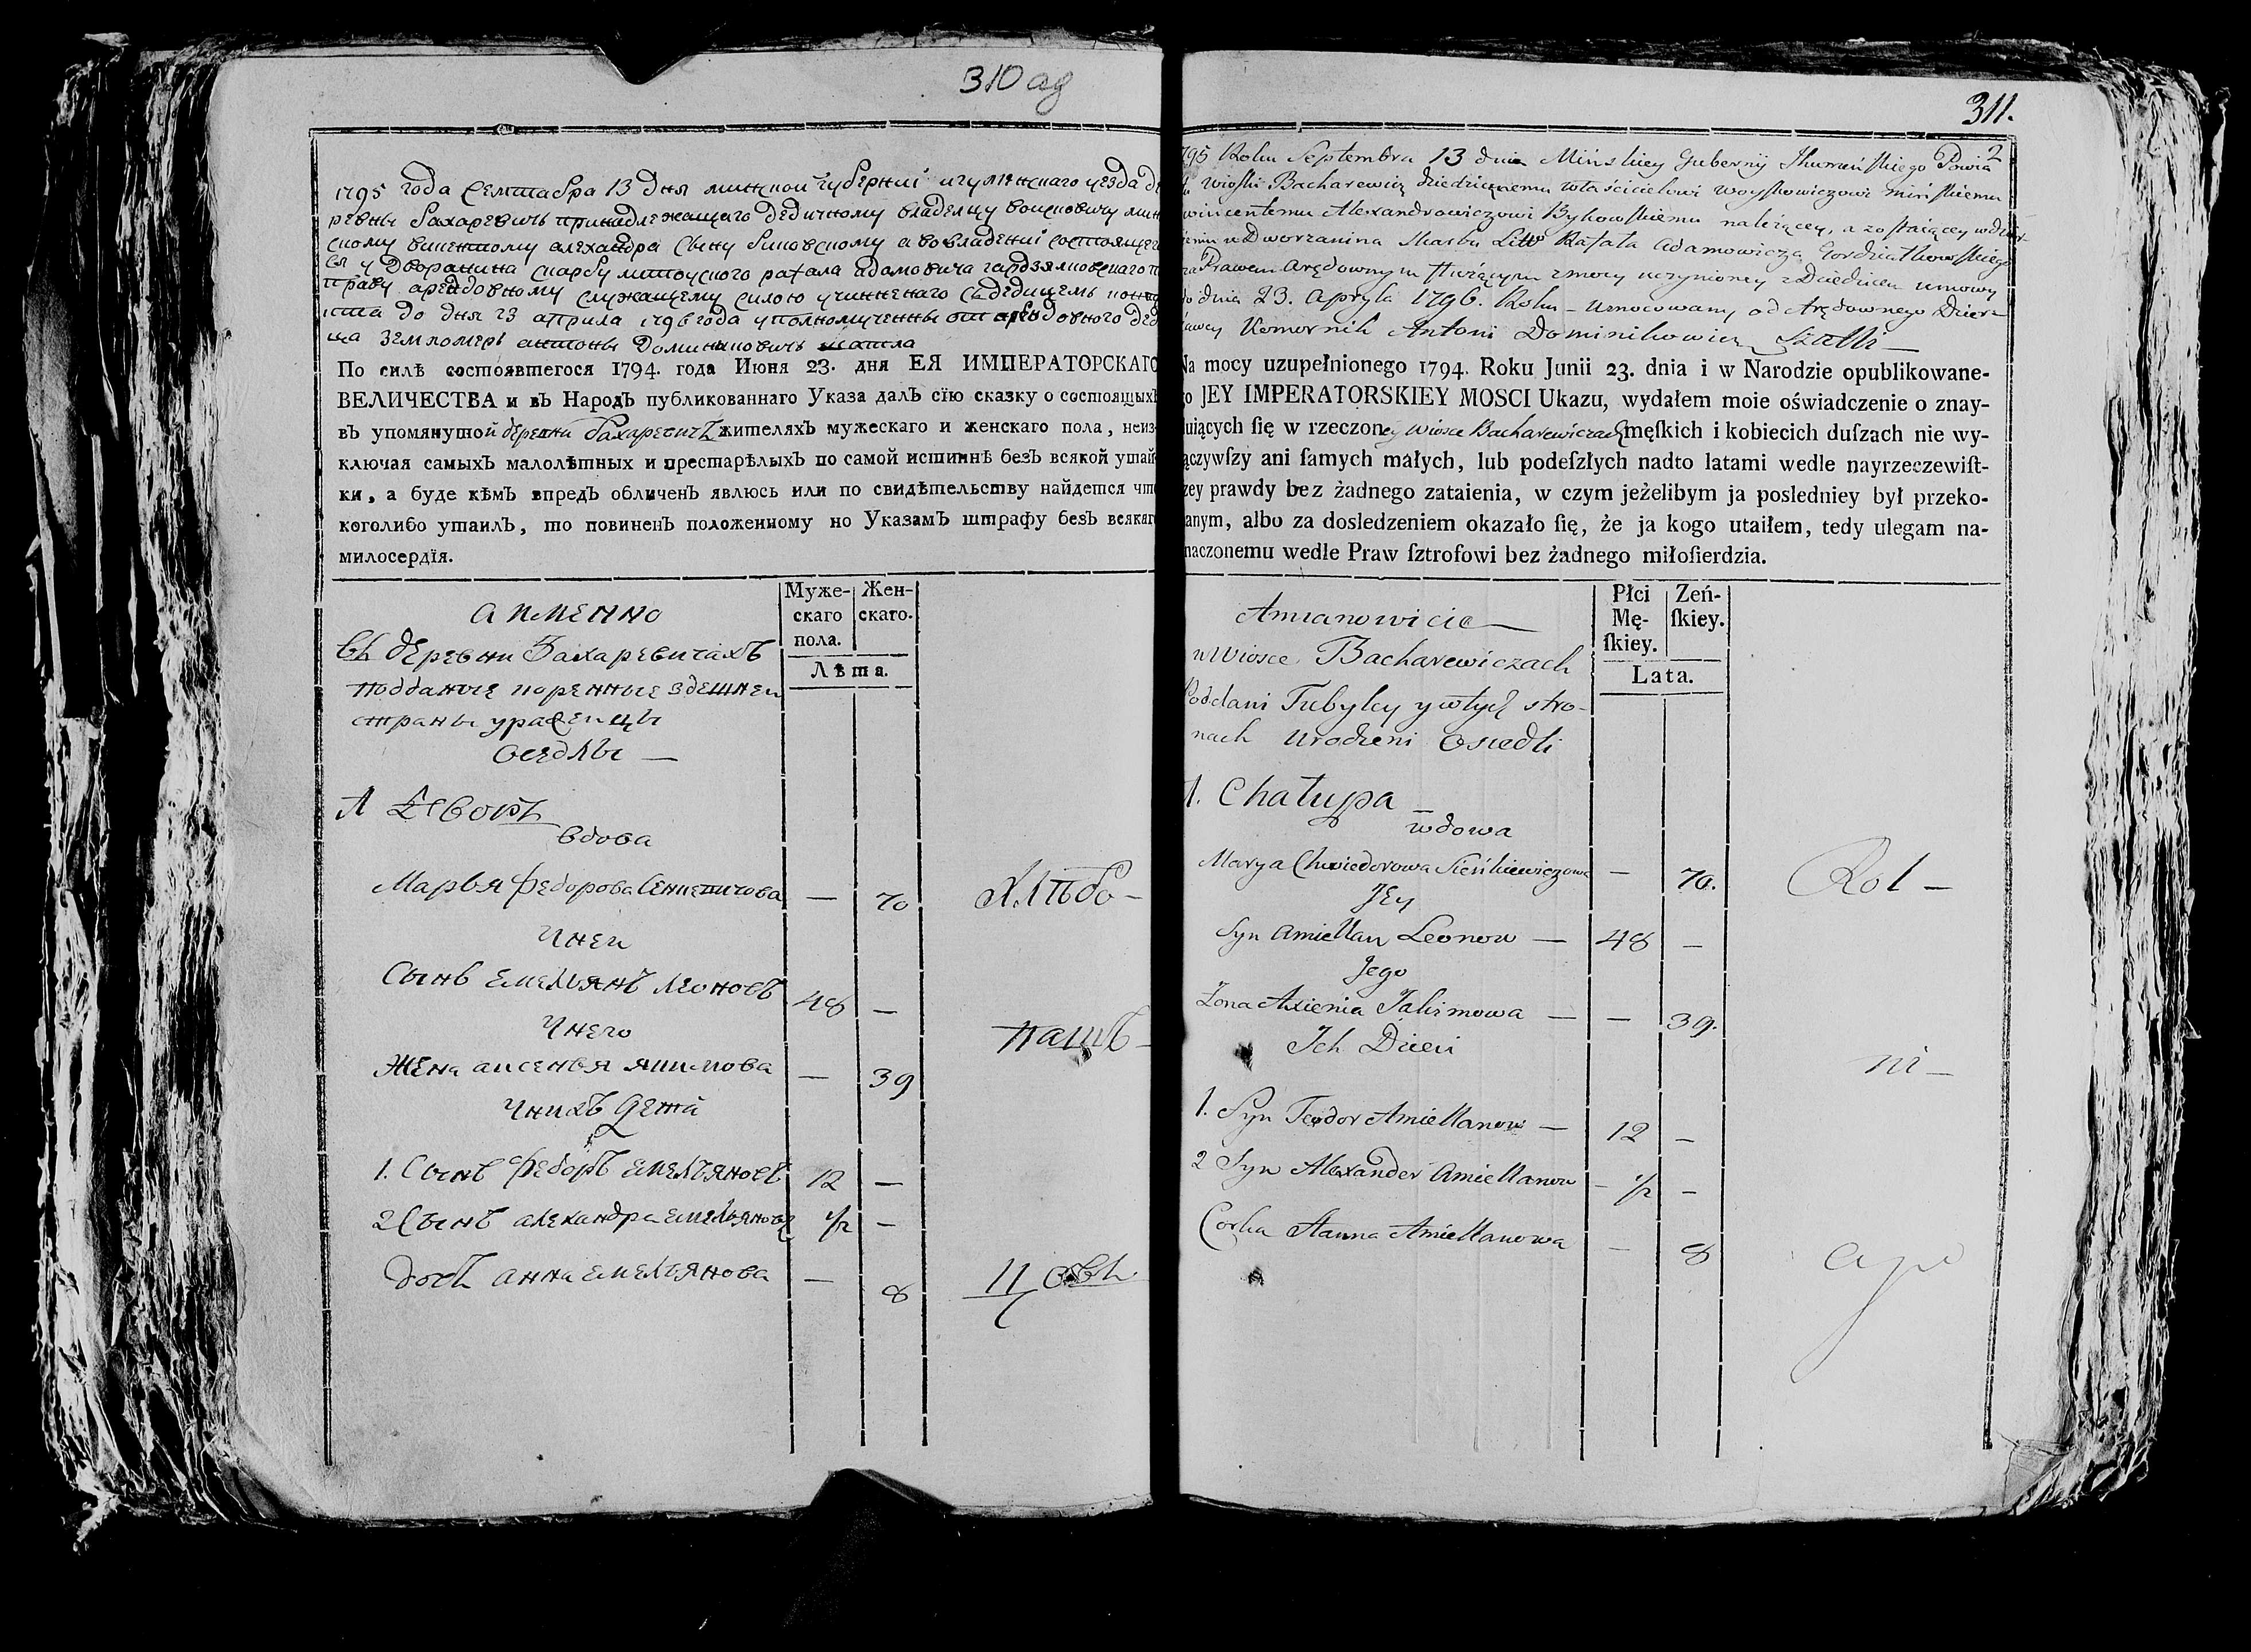 310 ад
1795 года Семтабра 13 дня минской губерниі игуменскаго уезда де
ревны Бахаревичь принадлежащаго дедичному владелцу воисковичу мин
скому винентому алехандра сыну биковскому а вовладениі состоящег
ся у дворанина скарбу литоуского рафала адамовича гардзялковскаго п
праву арендовному служащему силою учинненаго сдедицемъ
до дня 23 априла 1796 года уполномученны от арендовного дер
ца земломеръ антоны доминиковичь
По силѣ состоявшегося 1794. года Июня 23. дня ЕЯ ИМПЕРАТОРСКАГО
ВЕЛИЧЕСТВА и вЪ НародЪ публикованнаго Указа далЪ сїю сказку о состоящихЪ
вЪ упомянутой деревни бахаревичъ жителяхЪ мужескаго и женскаго пола, неиз-
ключая самыхЪ малолѣтныхЪ и престарѣлыхЪ по самой истиннѣ безЪ всякой утай-
ки, а буде кѣмЪ впредЪ обличенЪ явлюсь или по свидѣтельству найдется что
коголибо утаилЪ, то повиненЪ положенному по УказамЪ штрафу безЪ всякаго
милосердїя.
а именно
Муже-
скаго
пола.
Жен-
скаго.
Лѣта.
въ деревни Бахаревичахъ
подданые коренные здешнеи
страны ураженцы
оседлы —
1 Дворъ
вдова
Марья федорова Сенкевичова — 70 хлѣбо-
Унеи
Сынъ емельянъ леоновъ 48 —
Унего
Жена аксенья якимова — 39 пашъ-
Унихъ дети
1. Сынъ федоръ емельяновъ 12 —
2 Сынъ алехандра емельяновъ 1/2 —
дочь анна емельянова — 8
311.
2
795 Roku Septembra 13 dnia Mińskiey Gubernij Ihumeńskiego Powia
wioski Bacharewicz dziedzicznemu włascicielowi woyskowiczowi mińskiemu
wincentemu Alexandrowiczowi Bykowskiemu należącey, a zostaiącey w dzier-
żeniu u Dworzanina Skarbu Litt Rafała Adamowicza Gordziałkowskiego
za Prawem Arędownym służącym z mocy uczynioney z Dziedzicem umowy
do dnia 23. Apryla 1796. Roku – Umocowany od Arędownego Dzier-
żawcy Komornik Antoni Dominikowicz
Na mocy uzupełnionego 1794. Roku Junii 23. dnia i w Narodzie opublikowane-
go JEY IMPERATORSKIEY MOSCI Ukazu, wydałem moie oświadczenie o znay-
duiących ſię w rzeczoney wiosce Bacharewiczach męſkich i kobiecich duſzach nie wy-
łączywſzy ani ſamych małych, lub podeſzłych nadto latami wedle nayrzeczewiſt-
ſzey prawdy bez żadnego zataienia, w czym jeżelibym ja posledniey był przeko-
nanym, albo za dosledzeniem okazało ſię, że ja kogo utaiłem, tedy ulegam na-
znaczonemu wedle Praw ſztrofowi bez żadnego miłoſierdzia.
Amianowicie —
Płci
Mę-
ſkiey.
Zeń-
ſkiey.
Lata.
w Wiosce Bacharewiczach
Poddani Tubylcy y wtych stro-
nach Urodzeni Osiedli
1. Chałupa —
wdowa
Marya Chwiedorowa Sieńkiewiczowa — 70. Rol —
Jey
Syn Amiellan Leonow — 48 —
Jego
Żona Axienia Jakimowa — — 39.
Ich Dzieci
ni —
1. Syn Teodor Amiellanow — 12 —
2 Syn Alexander Amiellanow — 1/2 —
Corka Hanna Amiellanowa — 8